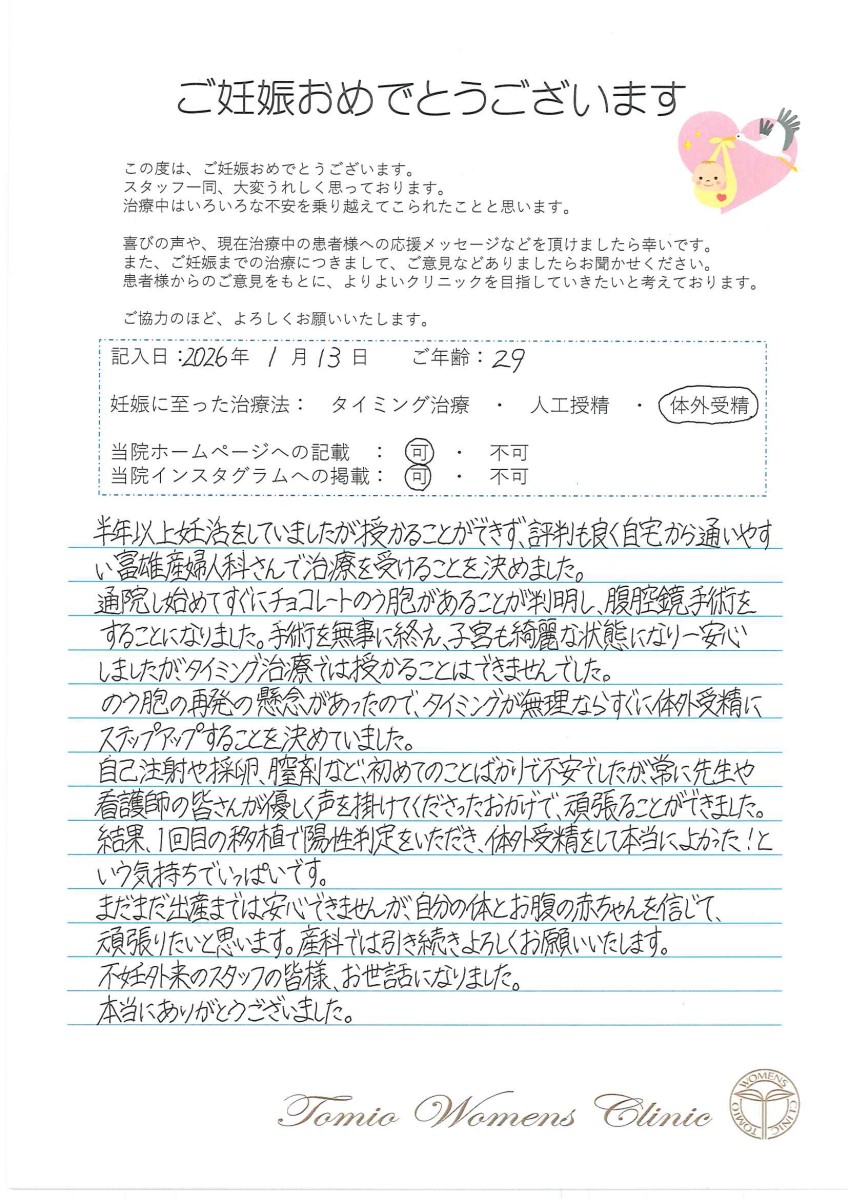 ご妊娠おめでとうございます
この度は、ご妊娠おめでとうございます。
スタッフ一同、大変うれしく思っております。
治療中はいろいろな不安を乗り越えてこられたことと思います。
喜びの声や、現在治療中の患者様への応援メッセージなどを頂けましたら幸いです。
また、ご妊娠までの治療につきまして、ご意見などありましたらお聞かせください。
患者様からのご意見をもとに、よりよいクリニックを目指していきたいと考えております。
ご協力のほど、よろしくお願いいたします。
記入日：2026年 1月13日 ご年齢：29
妊娠に至った治療法： タイミング治療 ・ 人工授精 ・ 体外受精
当院ホームページへの記載 ： 可 ・ 不可
当院インスタグラムへの掲載： 可 ・ 不可
半年以上妊活をしていましたが授かることができず、評判も良く自宅から通いやす
い富雄産婦人科さんで治療を受けることを決めました。
通院し始めてすぐにチョコレートのう胞があることが判明し、腹腔鏡手術を
することになりました。手術を無事に終え、子宮も綺麗な状態になり一安心
しましたがタイミング治療では授かることはできませんでした。
のう胞の再発の懸念があったので、タイミングが無理ならすぐに体外受精に
ステップアップすることを決めていました。
自己注射や採卵、膣剤など、初めてのことばかりで不安でしたが、常に先生や
看護師の皆さんが優しく声を掛けてくださったおかげで、頑張ることができました。
結果、1回目の移植で陽性判定をいただき、体外受精をして本当によかった！と
いう気持ちでいっぱいです。
まだまだ出産までは安心できませんが、自分の体とお腹の赤ちゃんを信じて、
頑張りたいと思います。産科では引き続きよろしくお願いいたします。
不妊外来のスタッフの皆様、お世話になりました。
本当にありがとうございました。
Tomio Womens Clinic
TOMIO WOMENS CLINIC